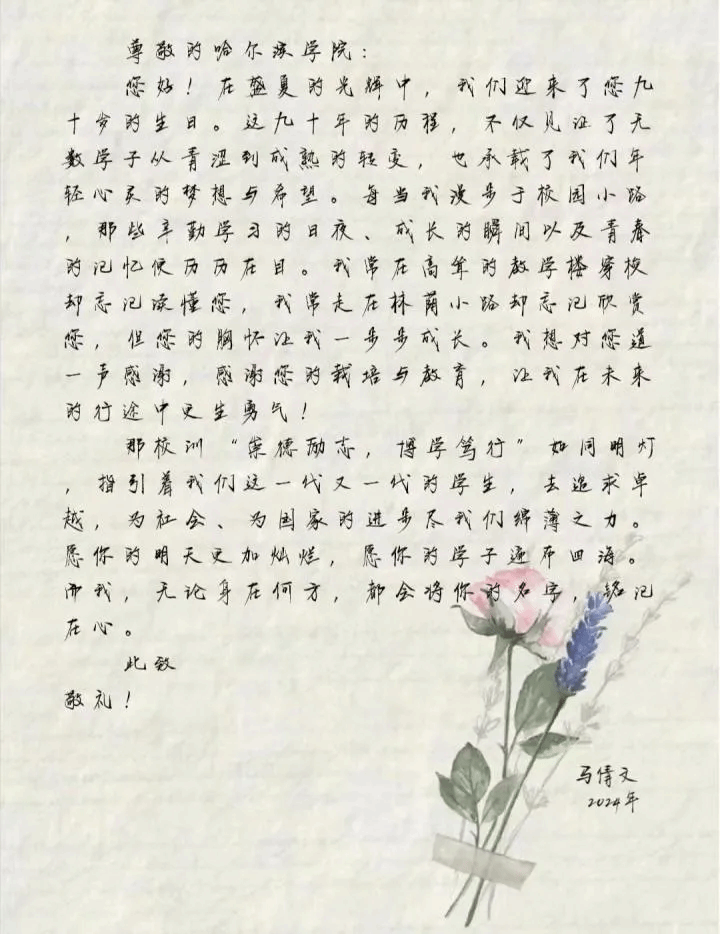 尊敬的哈尔滨学院：
您好！在盛夏的光辉中，我们迎来了您九
十岁的生日。这九十年的历程，不仅见证了无
数学子从青涩到成熟的转变，也承载了我们年
轻心灵的梦想与希望。每当我漫步于校园小路
，那些辛勤学习的日夜、成长的瞬间以及青春
的记忆便历历在目。我常在高耸的教学楼穿梭
却忘记读懂您，我常走在林荫小路却忘记欣赏
您，但您的胸怀让我一步步成长。我想对您道
一声感谢，感谢您的栽培与教育，让我在未来
的行途中更生勇气！
那校训“崇德励志，博学笃行”如同明灯
，指引着我们这一代又一代的学生，去追求卓
越，为社会、为国家的进步尽我们绵薄之力。
愿你的明天更加灿烂，愿你的学子遍布四海。
而我，无论身在何方，都会将你的名字，铭记
在心。
此致
敬礼！
马倩文
2024年